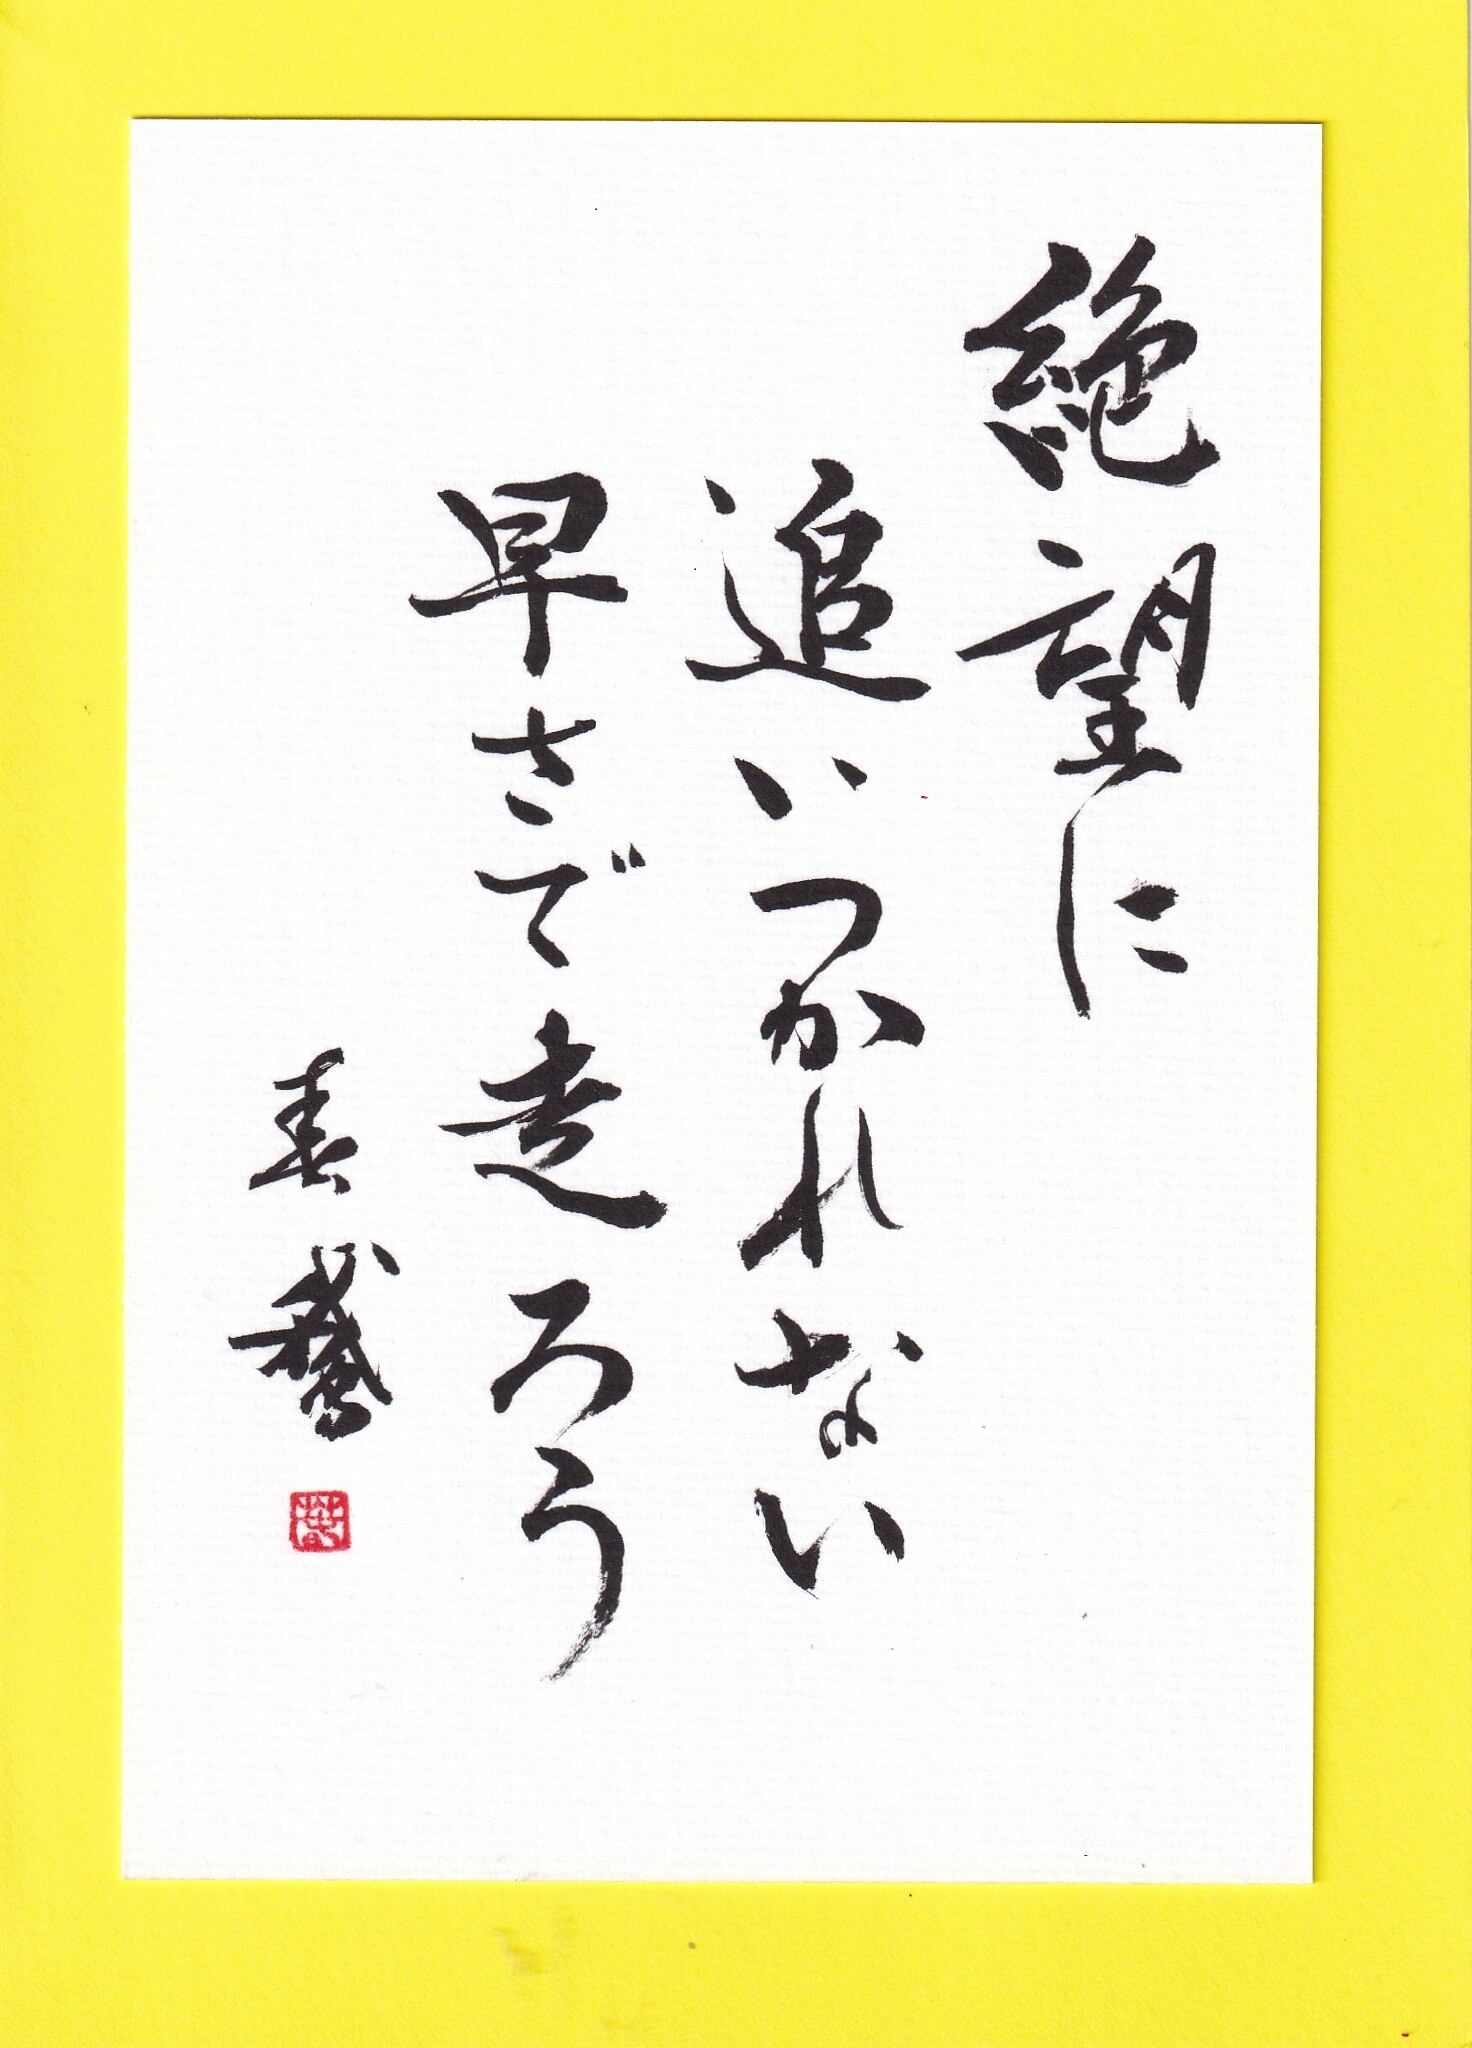 絶望に
追いつかれない
早さで走ろう
春鵞